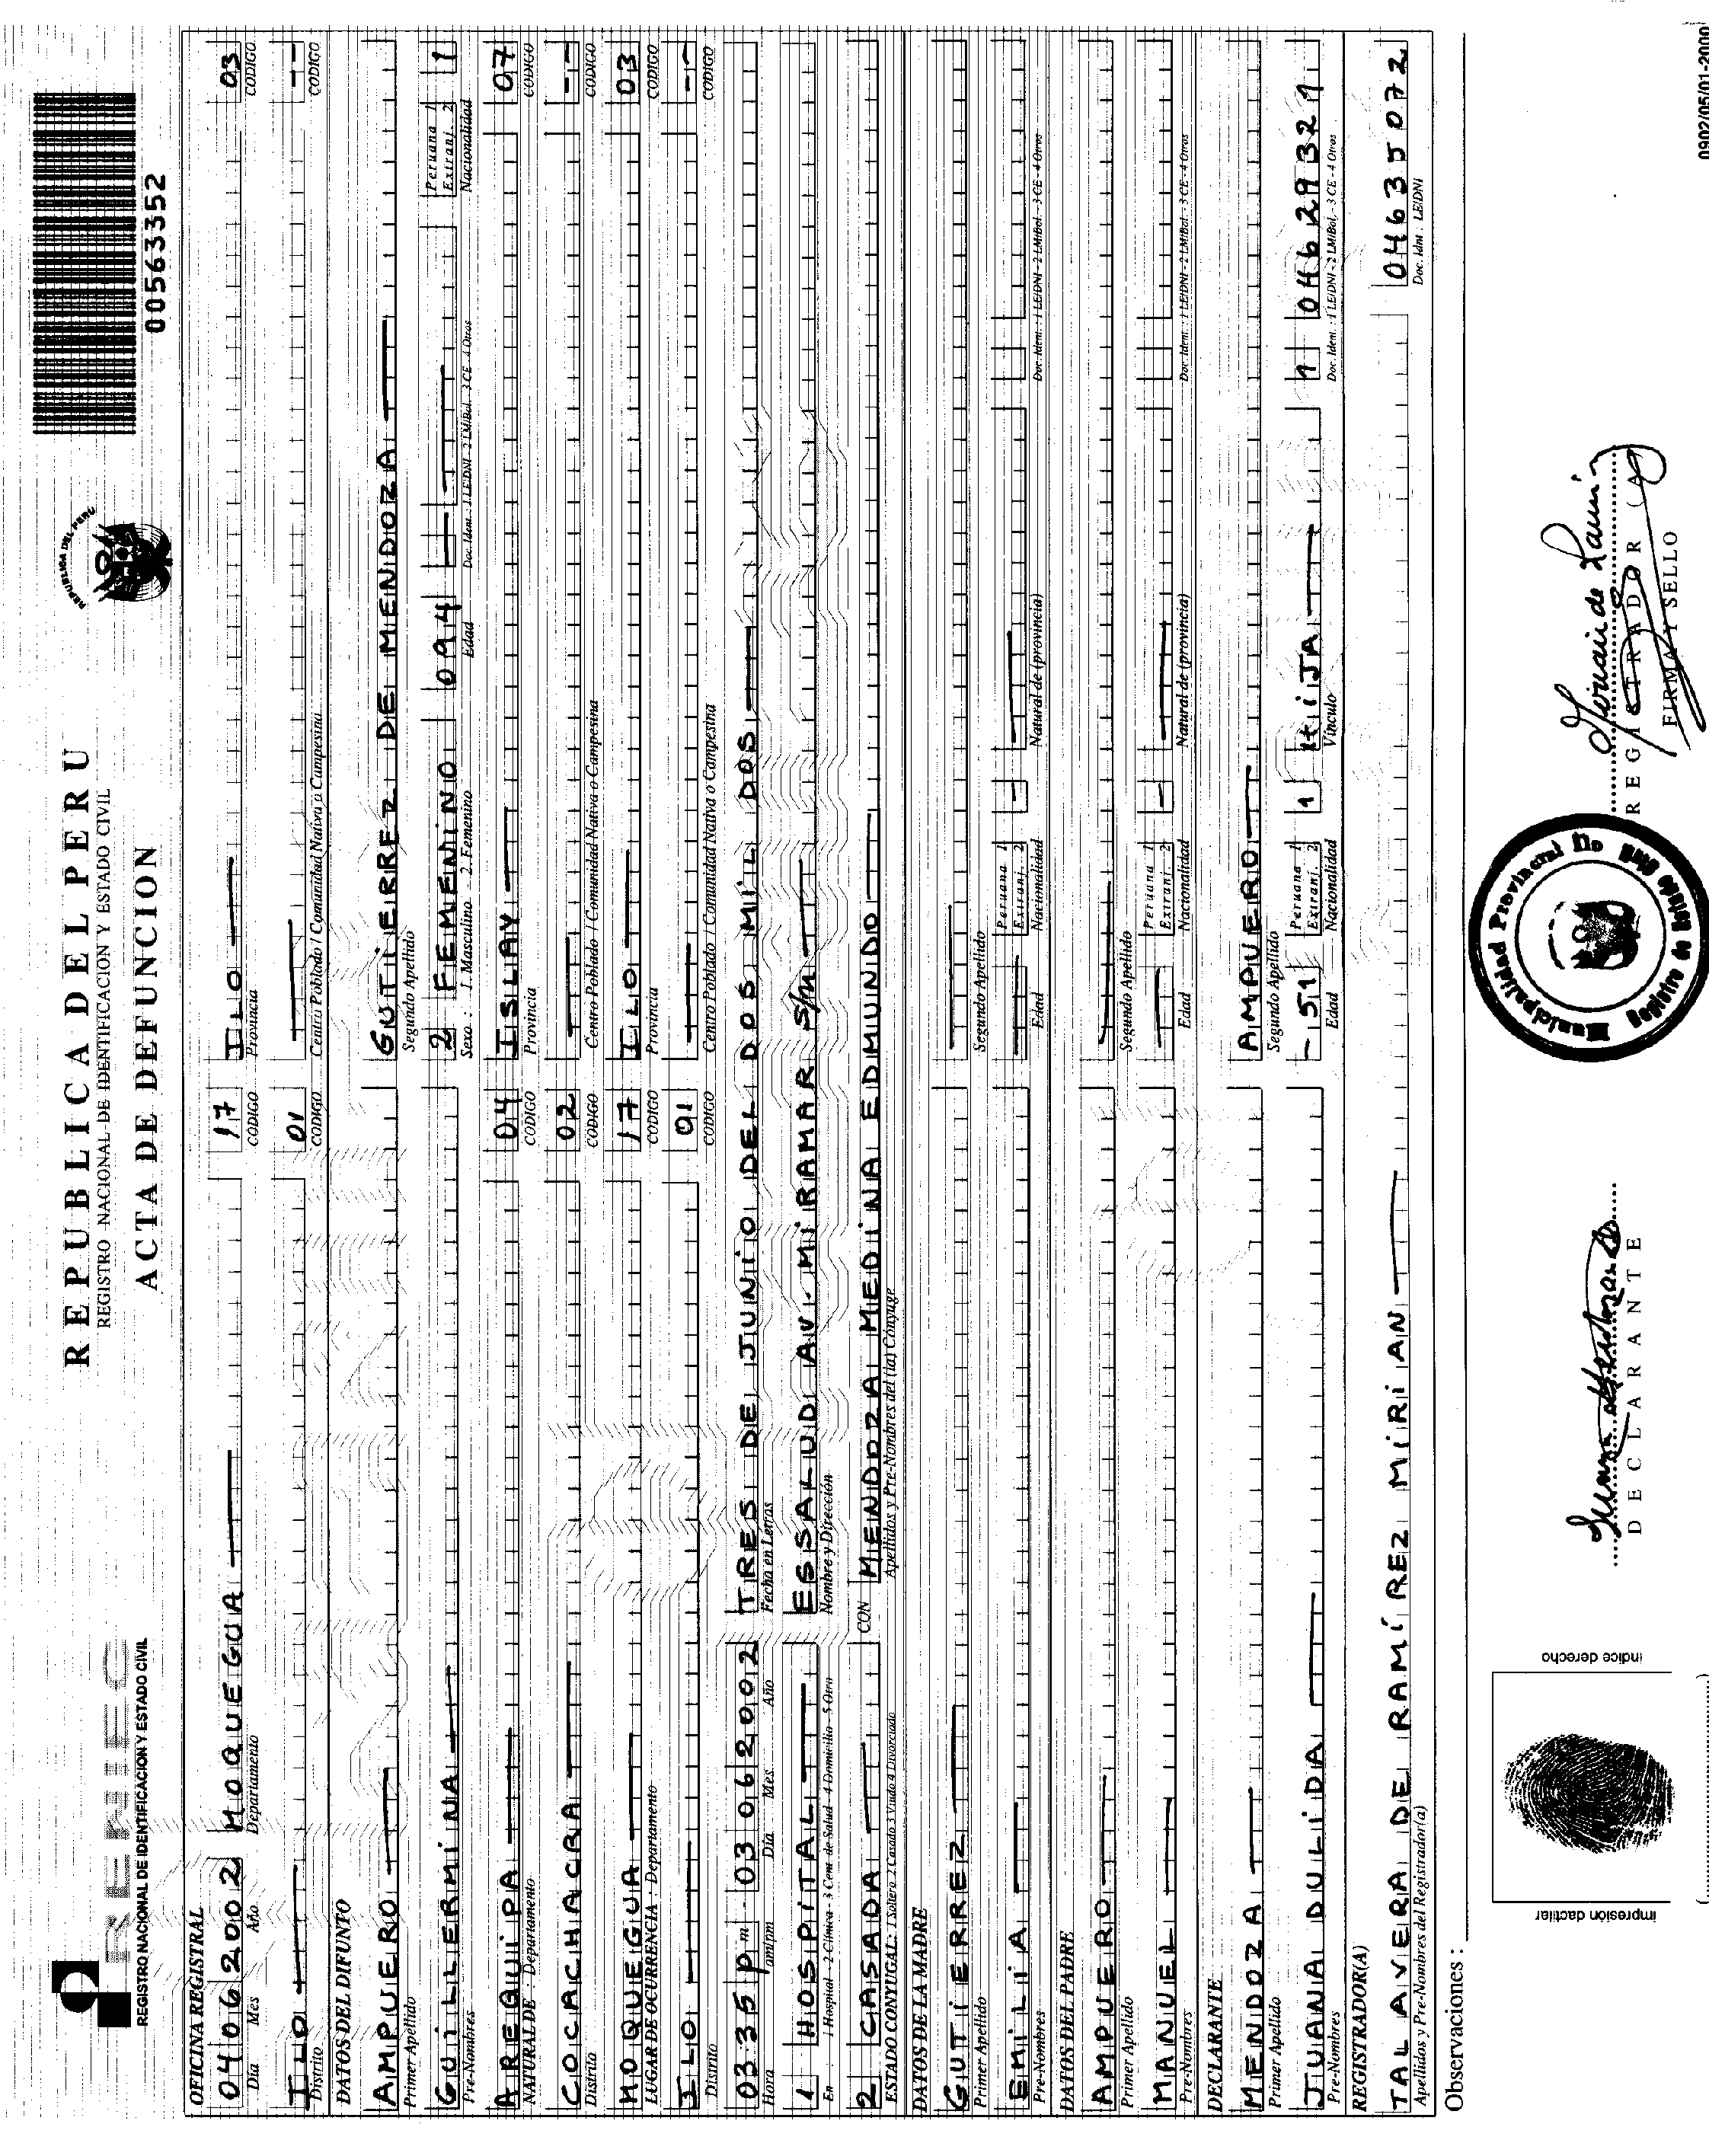 RENIEC
REGISTRO NACIONAL DE IDENTIFICACION Y ESTADO CIVIL
REPUBLICA DEL PERU
REGISTRO NACIONAL DE IDENTIFICACION Y ESTADO CIVIL
ACTA DE DEFUNCION
REPUBLICA DEL PERU
00563352
OFICINA REGISTRAL
04 06 2002 MOQUEGUA 17 ILO 03
Día Mes Año Departamento CODIGO Provincia CODIGO
ILO 01 --
Distrito CODIGO Centro Poblado / Comunidad Nativa o Campesina CODIGO
DATOS DEL DIFUNTO
AMPUERO GUTIERREZ DE MENDOZA
Primer Apellido Segundo Apellido
GUILLERMINA 2 FEMENINO 094 Peruana 1 Extranj. 2 1
Pre-Nombres Sexo : 1. Masculino - 2. Femenino Edad Doc. Iden.: 1 LE/DNI - 2 LM/Bol. 3 CE - 4 Otros Nacionalidad
AREQUIPA 04 ISLAY 07
NATURAL DE : Departamento CODIGO Provincia CODIGO
COCACHACRA 02 --
Distrito CODIGO Centro Poblado / Comunidad Nativa o Campesina CODIGO
MOQUEGUA 17 ILO 03
LUGAR DE OCURRENCIA : Departamento CODIGO Provincia CODIGO
ILO 01 --
Distrito CODIGO Centro Poblado / Comunidad Nativa o Campesina CODIGO
03 35 pm 03 06 2002 TRES DE JUNIO DEL DOS MIL DOS
Hora am/pm Día Mes Año Fecha en Letras
1 HOSPITAL ESSALUD AV. MIRAMAR S/N
En : 1 Hospital - 2 Clínica - 3 Cent. de Salud - 4 Domicilio - 5 Otro Nombre y Dirección
2 CASADA CON MENDOZA MEDINA EDMUNDO
ESTADO CONYUGAL: 1 Soltero 2 Casado 3 Viudo 4 Divorciado Apellidos y Pre-Nombres del (la) Cónyuge
DATOS DE LA MADRE
GUTIERREZ
Primer Apellido Segundo Apellido
EMILIA Peruana 1 Extranj. 2 -
Pre-Nombres Edad Nacionalidad Natural de (provincia) Doc. Iden.: 1 LE/DNI - 2 LM/Bol. - 3 CE - 4 Otros
DATOS DEL PADRE
AMPUERO
Primer Apellido Segundo Apellido
MANUEL Peruana 1 Extranj. 2 -
Pre-Nombres Edad Nacionalidad Natural de (provincia) Doc. Iden.: 1 LE/DNI - 2 LM/Bol. - 3 CE - 4 Otros
DECLARANTE
MENDOZA AMPUERO
Primer Apellido Segundo Apellido
JUANA DULIDA - 51 Peruana 1 Extranj. 2 1 HIJA 1 04629321
Pre-Nombres Edad Nacionalidad Vínculo Doc. Iden.: 1 LE/DNI - 2 LM/Bol. - 3 CE - 4 Otros
REGISTRADOR(A)
TALAVERA DE RAMÍREZ MIRIAN 04635072
Apellidos y Pre-Nombres del Registrador(a) Doc. Idnt : LE/DNI
Observaciones :
impresión dactilar
índice derecho
DECLARANTE
Municipalidad Provincial Ilo
REGISTRADOR (A)
FIRMA Y SELLO
0902/05/01-2000